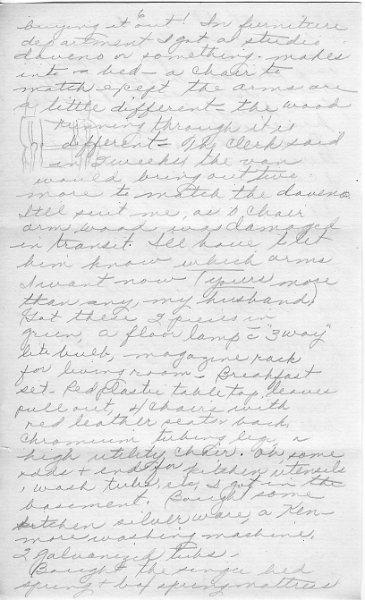 buying it out! In furniture
department I got a studio
daveno or something. makes
into a bed - a chair to
match exept the arms are
a little different - the wood
running through it is
different - The Clerk said
in 2 weeks the van
would bring out two
more to match the daveno
Itll suit me, as 1 chair
arm wood was damaged
in transit. I'll have to let
him know which arms
I want now (yours more
than any, my husband)
Got these 2 pieces in
green, a floor lamp c̄ "3 way"
lite bulb, magazine rack
for living room - Breakfast
set - Red Plastic tabletop, leaves
pull out, 4 chairs with
red leather seats & back,
chromium tubing leg, a
high utility chair. Oh some
odds & ends for kitchen utensils
, wash tubs, etc I got in the
basement. Bought some
kitchen silver ware, a Ken-
more washing machine,
2 galvanized tubs.
Bought the single bed
spring & box spring mattress